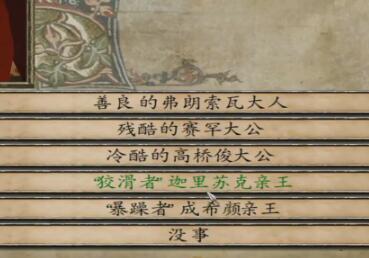 善良的弗朗索瓦大人
残酷的赛罕大公
冷酷的高桥俊大公
“狡滑者”迦里苏克亲王
“暴躁者”成希颜亲王
没事